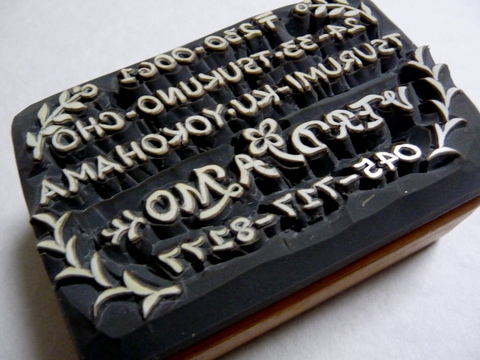 〒230-0061
24-33-TSUKUNO-CHO
TSURUMI-KU, YOKOHAMA
045-717-8177